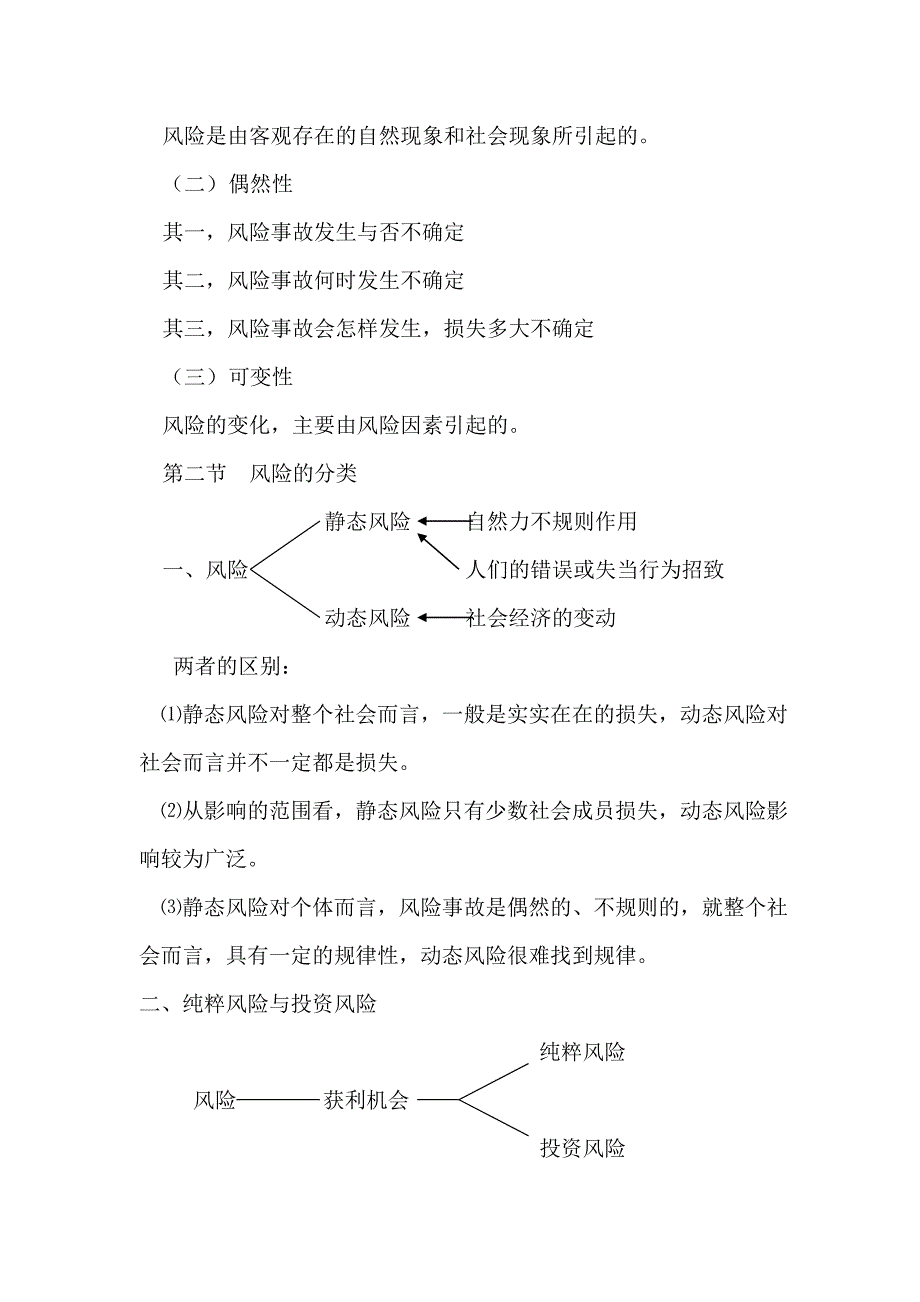 风险是由客观存在的自然现象和社会现象所引起的。
（二）偶然性
其一，风险事故发生与否不确定
其二，风险事故何时发生不确定
其三，风险事故会怎样发生，损失多大不确定
（三）可变性
风险的变化，主要由风险因素引起的。
第二节　风险的分类
静态风险 自然力不规则作用
一、风险 人们的错误或失当行为招致
动态风险 社会经济的变动
两者的区别：
⑴静态风险对整个社会而言，一般是实实在在的损失，动态风险对
社会而言并不一定都是损失。
⑵从影响的范围看，静态风险只有少数社会成员损失，动态风险影
响较为广泛。
⑶静态风险对个体而言，风险事故是偶然的、不规则的，就整个社
会而言，具有一定的规律性，动态风险很难找到规律。
二、纯粹风险与投资风险
纯粹风险
风险 获利机会
投资风险